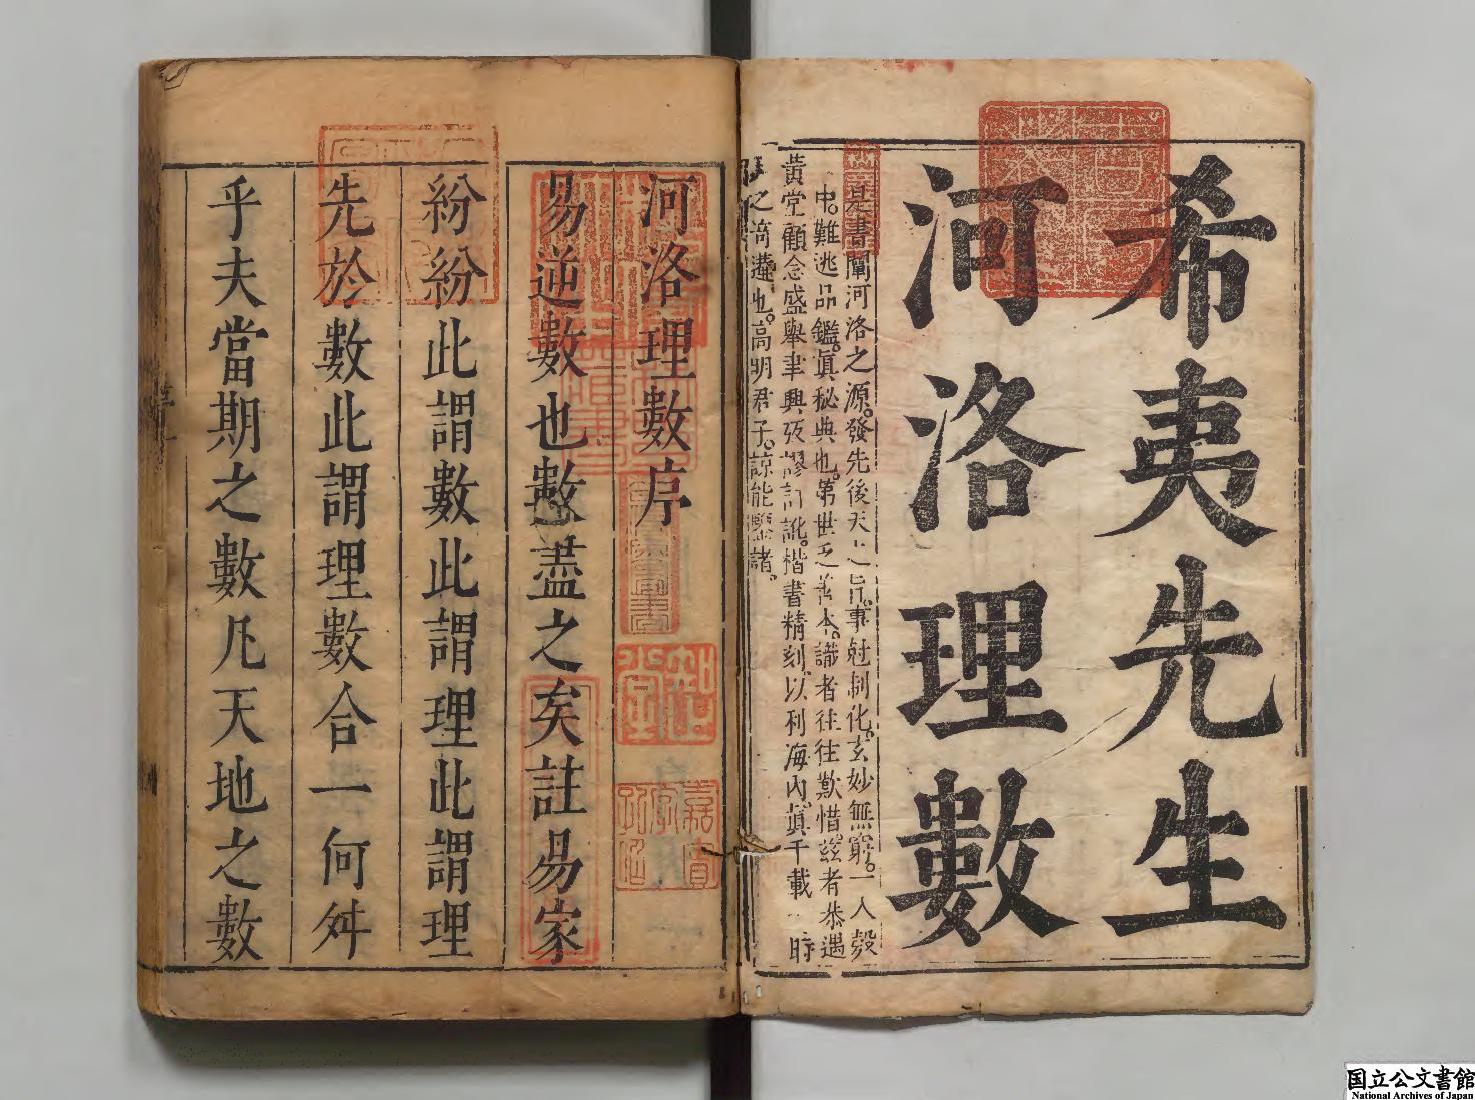 希夷先生
河洛理數
是書闡河洛之源。發先後天之旨。事尅制化。玄妙無窮。一入彀
中。難逃品鑑。眞秘典也。第世乏善本。識者往往歎惜。茲者恭遇
黃堂顧念盛舉聿興。殀謬訂訛。楷書精刻。以利海內。眞千載一時
之 也。高明君子。諒能鑒諸。
河洛理數序
易逆數也數盡之矣註易家
紛紛此謂數此謂理此謂理
先於數此謂理數合一何舛
乎夫當期之數凡天地之數
嘉
国立公文書館
National Archives of Japan